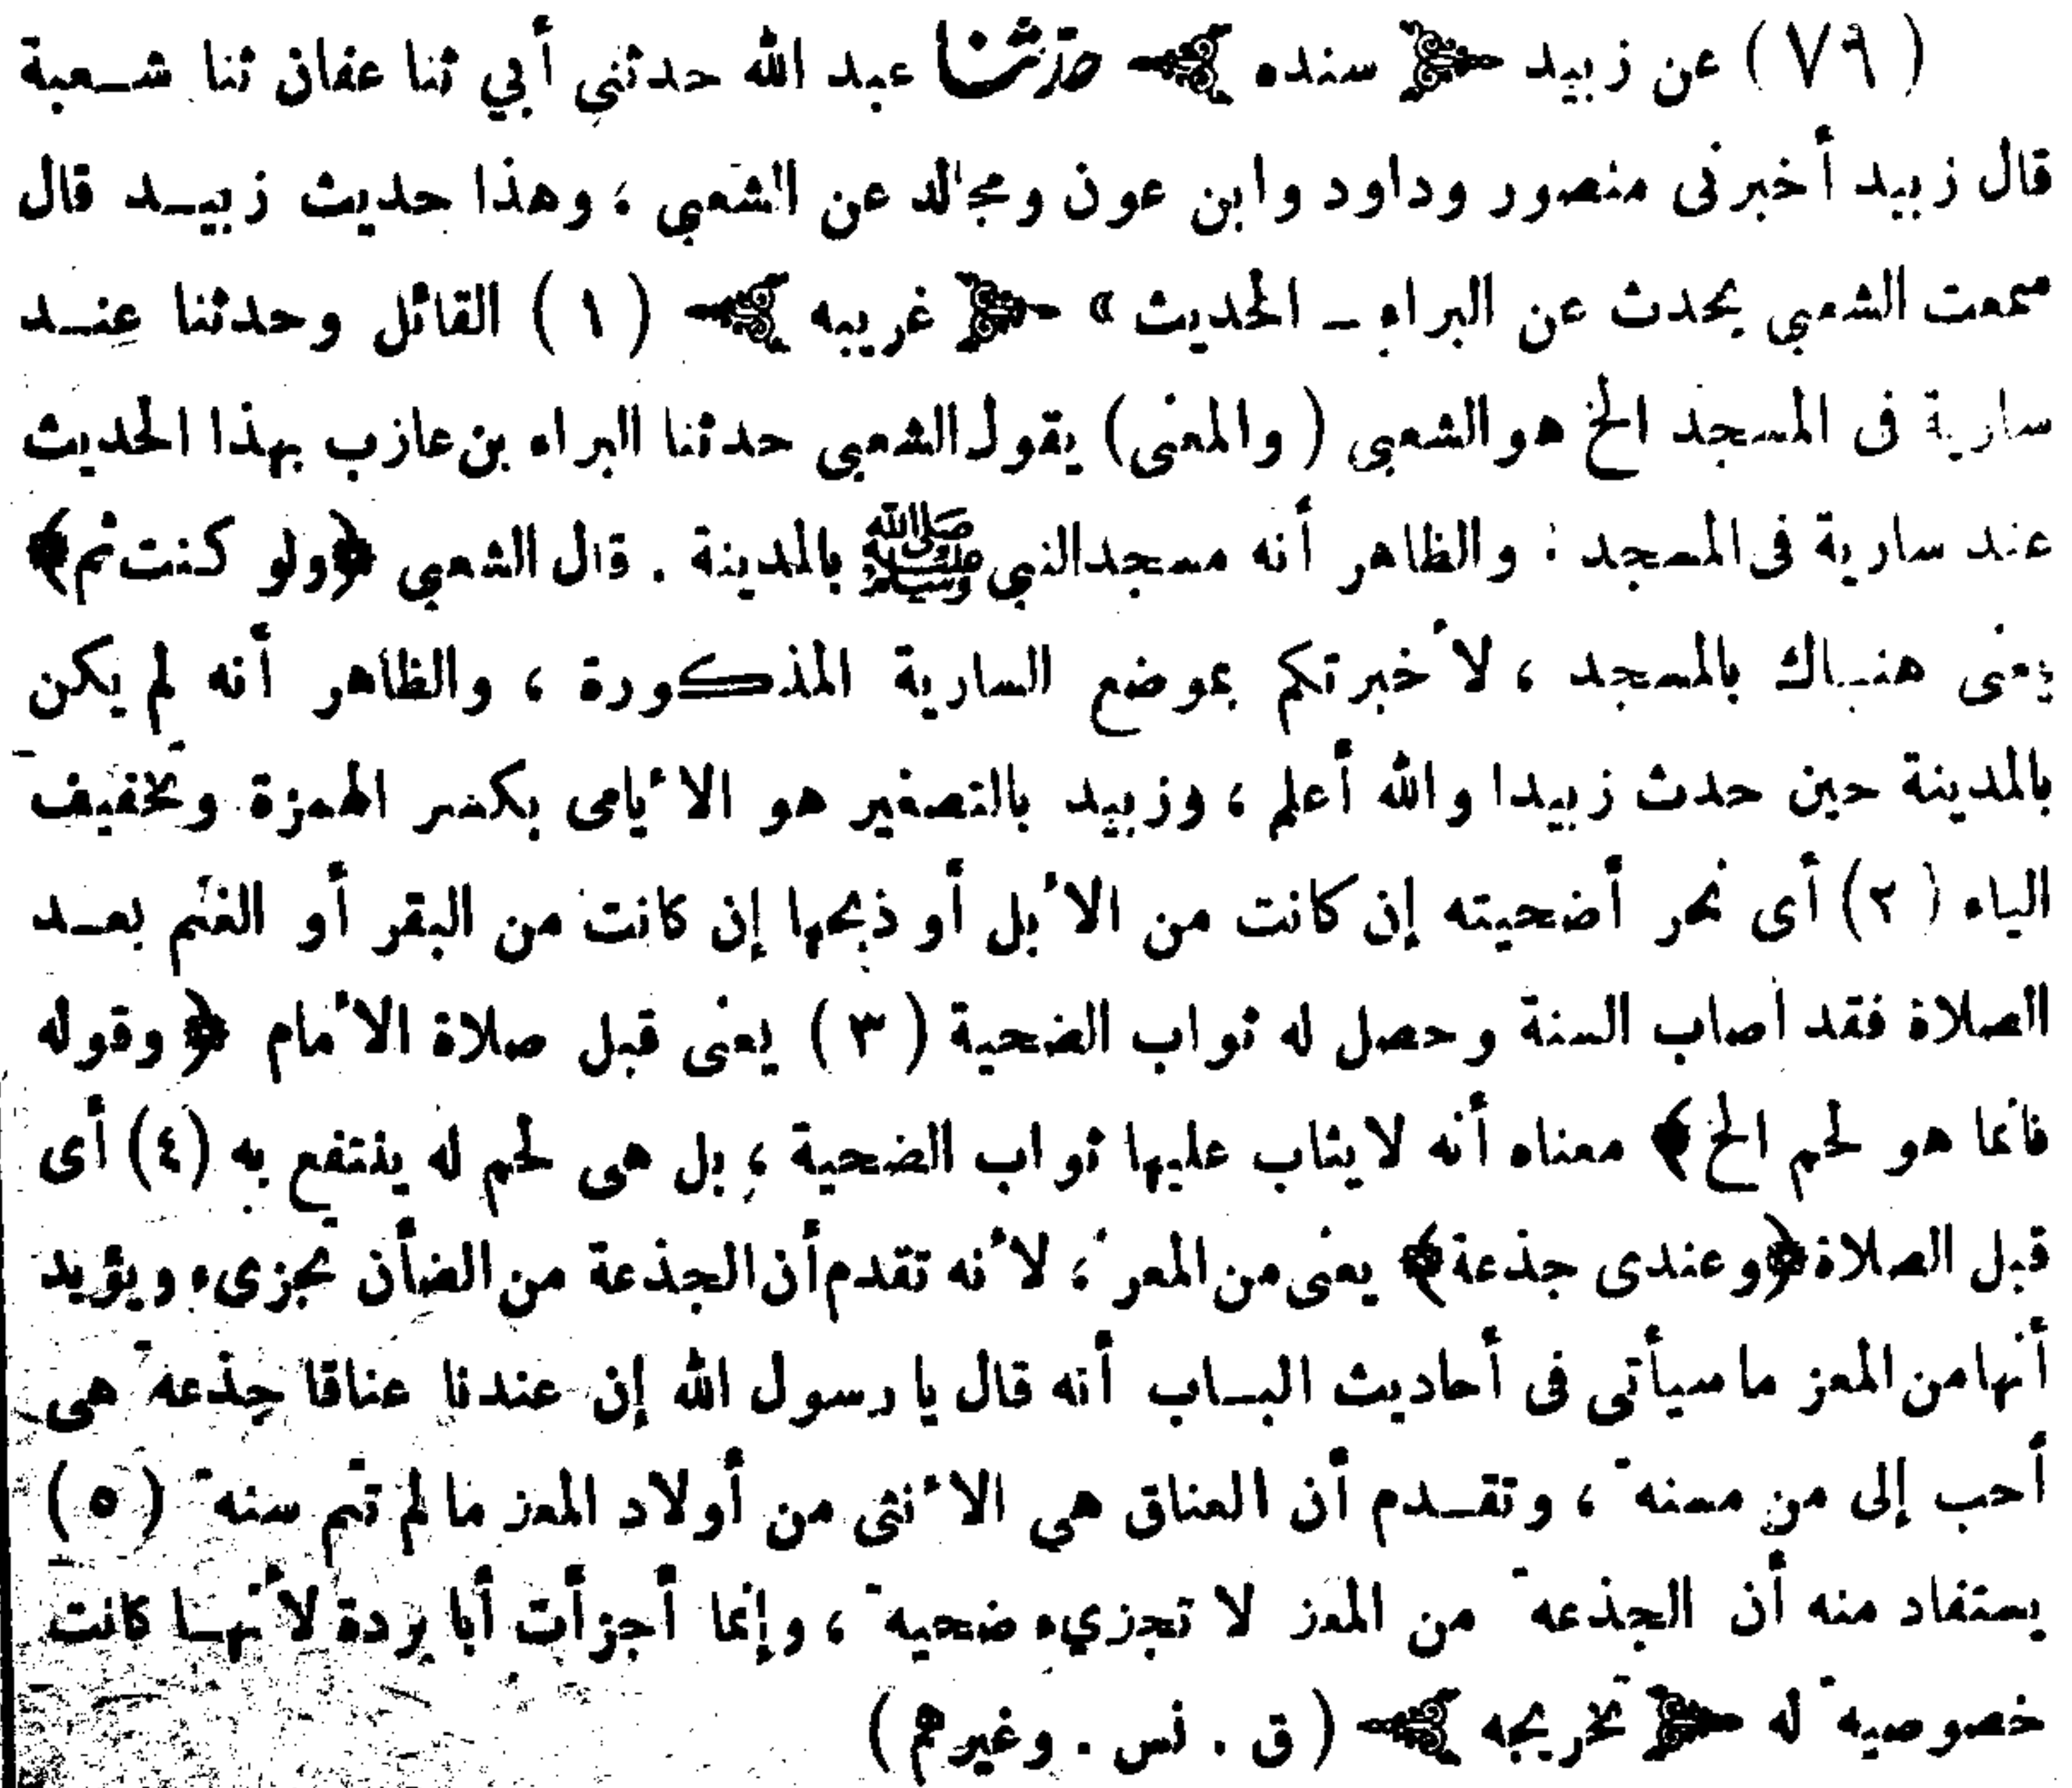 (٧٩) عن زبيد ﴿ سنده ﴾ حدثنا عبد الله حدثني أبي ثنا عفان ثنا شعبة
قال زبيد أخبرنى منصور وداود وابن عون ومجالد عن الشعبي ، وهذا حديث زبيد قال
سمعت الشعبي يحدث عن البراء ـ الحديث » ﴿ غريبه ﴾ (١) القائل وحدثنا عند
سارية فى المسجد الخ هو الشعبى (والمعنى) يقول الشعبى حدثنا البراء بن عازب بهذا الحديث
عند سارية فى المسجد : والظاهر أنه مسجد النبي ﷺ بالمدينة . قال الشعبي ﴿ولو كنت ثم﴾
يعنى هناك بالمسجد ، لأخبرتكم بموضع السارية المذكورة ، والظاهر أنه لم يكن
بالمدينة حين حدث زبيدا والله أعلم ، وزبيد بالتصغير هو الأيامى بكسر الهمزة وتخفيف
الياء (٢) أى نحر أضحيته إن كانت من الأبل أو ذبحها إن كانت من البقر أو الغنم بعد
الصلاة فقد أصاب السنة وحصل له ثواب الضحية (٣) يعنى قبل صلاة الأمام ﴿ وقوله
فانما هو لحم الخ ﴾ معناه أنه لا يثاب عليها ثواب الضحية ، بل هى لحم له ينتفع به (٤) أى
قبل الصلاة ﴿وعندى جذعة﴾ يعنى من المعز ، لأنه تقدم أن الجذعة من الضأن تجزىء ويؤيد
أنها من المعز ما سيأتى فى أحاديث الباب أنه قال يا رسول الله إن عندنا عناقا جذعة هى
أحب إلى من مسنة ، وتقدم أن العناق هي الأنثى من أولاد المعز ما لم تتم سنة (٥)
يستفاد منه أن الجذعة من المعز لا تجزيء ضحية ، وإنما أجزأت أبا بردة لأنها كانت
خصوصية له ﴿ تخريجه ﴾ (ق . نس . وغيرهم)